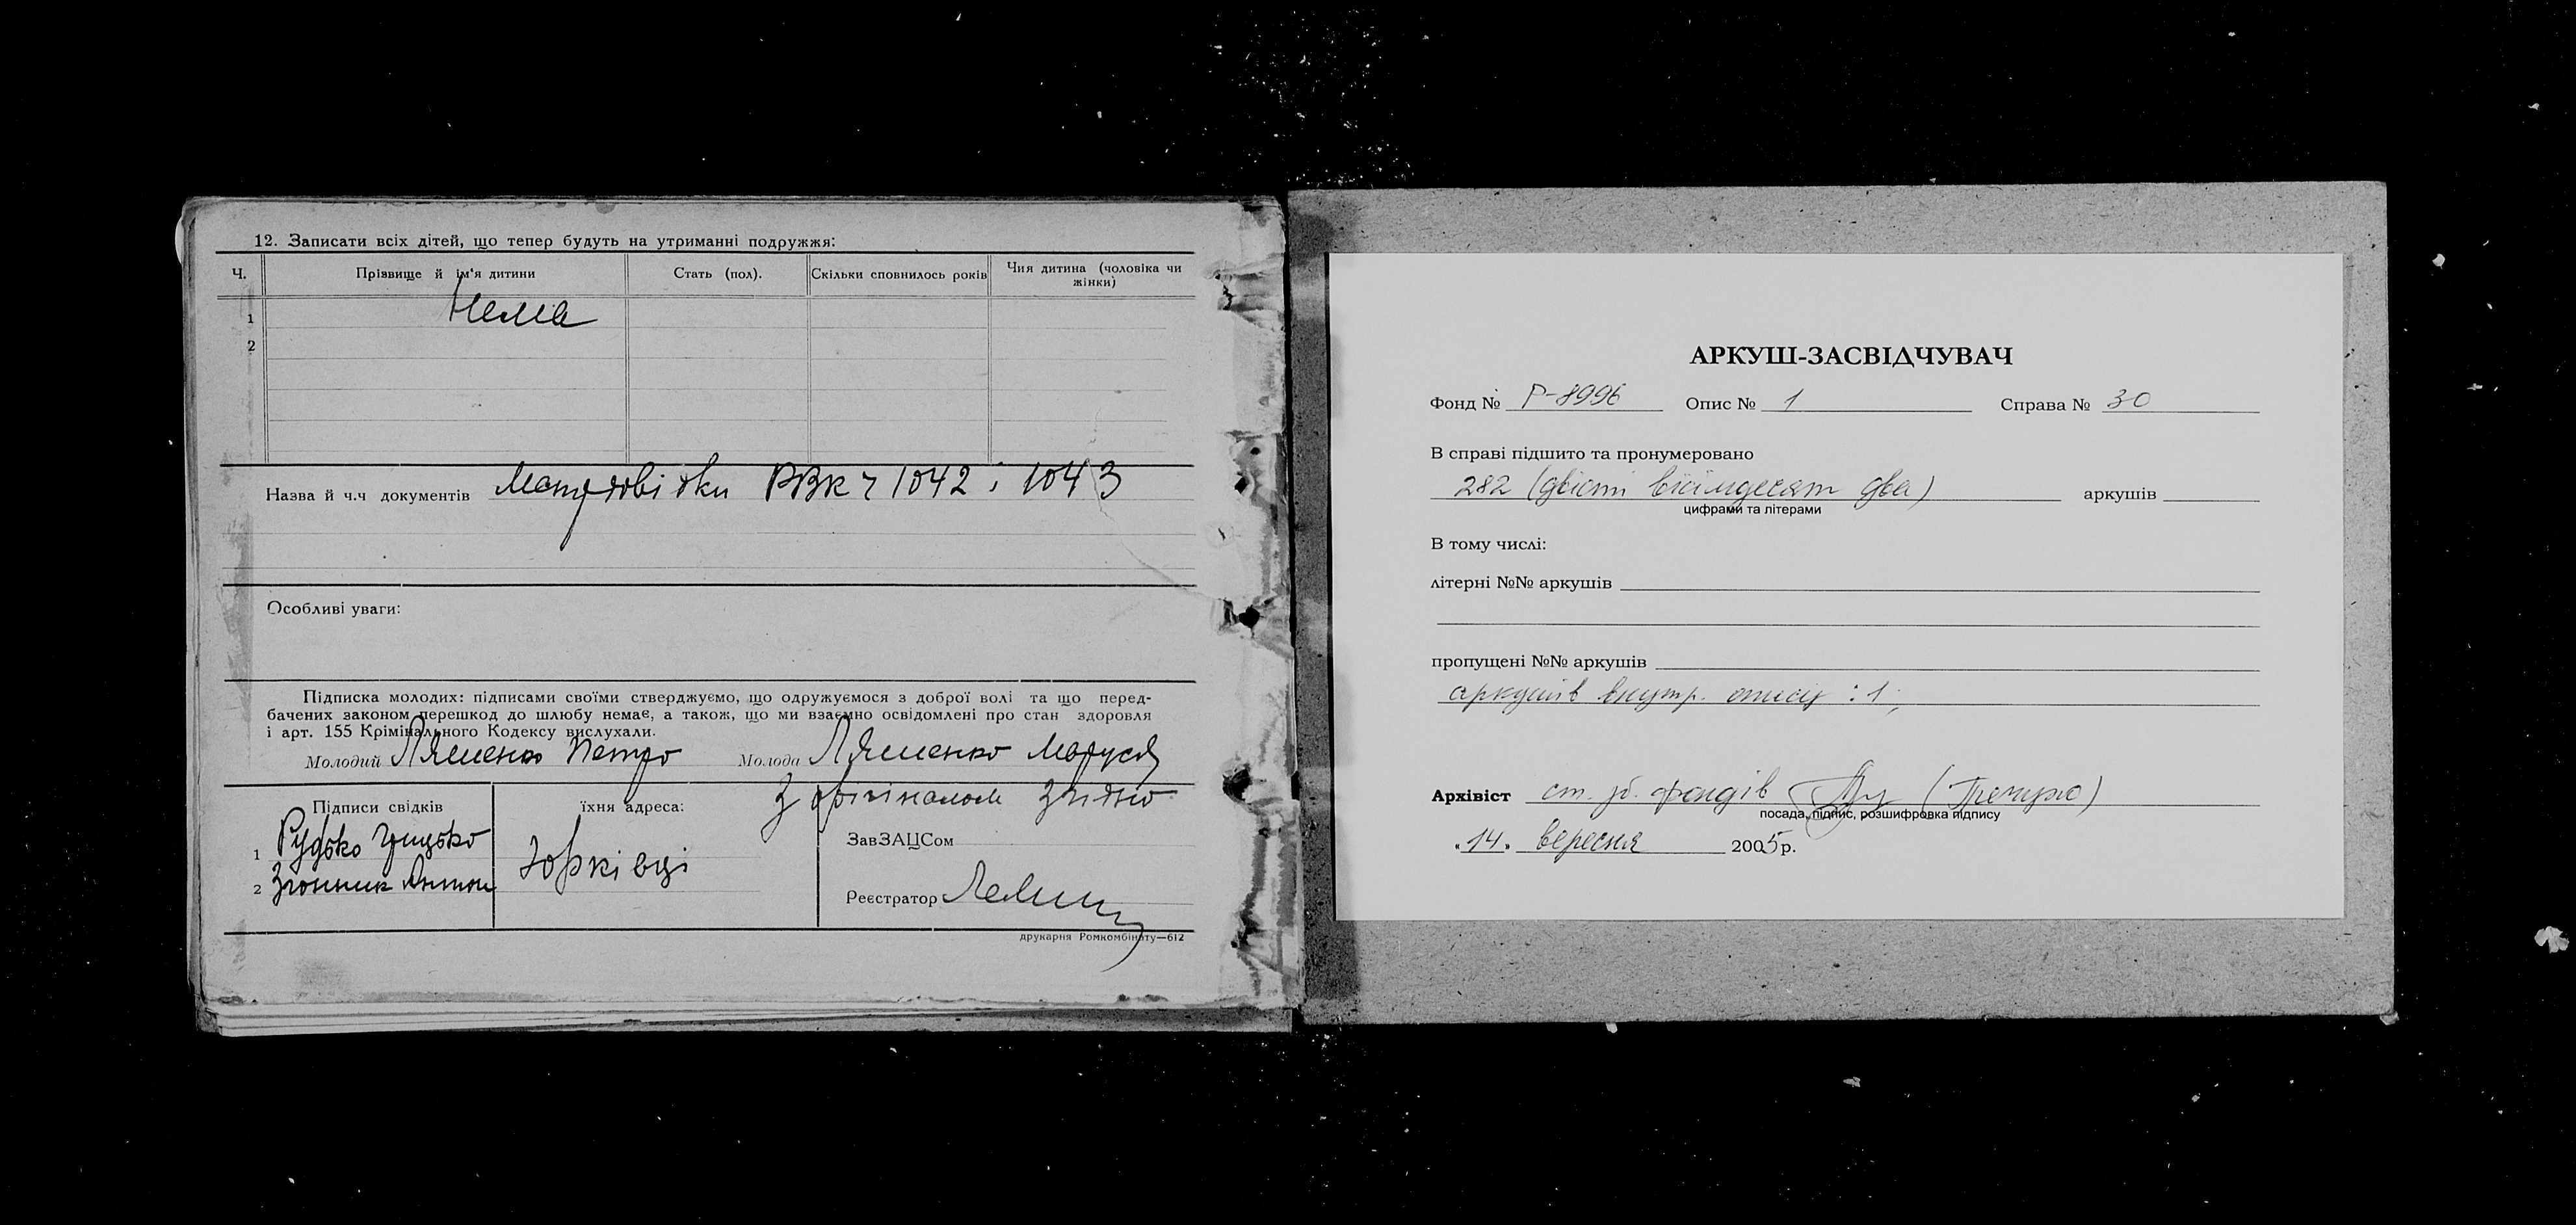 12. Записати всіх дітей, що тепер будуть на утриманні подружжя:
Ч. Прізвище й ім'я дитини Стать (пол). Скільки сповнилось років Чия дитина (чоловіка чи жінки)
1 Нема
2
Назва й ч.ч документів РВК ч 1042 і 1043
Особливі уваги:
Підписка молодих: підписами своїми стверджуємо, що одружуємося з доброї волі та що перед-
бачених законом перешкод до шлюбу немає, а також, що ми взаємно освідомлені про стан здоровля
і арт. 155 Крімінального Кодексу вислухали.
Молодий Ляшенко Петро Молода Ляшенко Маруся
З орігіналом згідно
Підписи свідків їхня адреса:
ЗавЗАЦСом
1 Рудько Грицько
Юрківці
2 Згонник Антон
Реєстратор
друкарня Ромкомбінату—612
АРКУШ-ЗАСВІДЧУВАЧ
Фонд № Р-8996 Опис № 1 Справа № 30
В справі підшито та пронумеровано
282 (двісті вісімдесят два) аркушів
цифрами та літерами
В тому числі:
літерні №№ аркушів
пропущені №№ аркушів
аркушів внутр. опису : 1;
Архівіст ст. зб. фондів
посада, підпис, розшифровка підпису
"14" вересня 2005р.